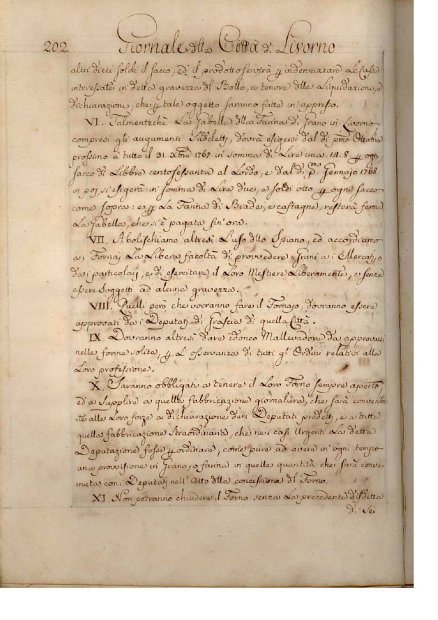 202 Giornale della Città di Livorno
altri dieci soldi il sacco, ed il prodotto servirà p indennizzare le Case
interessate in detta gravezza di Bollo, a tenore delle Liquidazioni, e
dichiarazioni, che p tale oggetto saranno fatte in appresso.
VI. Talmentechè La Gabella della Farina di Grano in Livorno
compresi gli augumenti suddetti, dovrà esigersi dal dì pmo Ottobre
prossimo a tutto il 31 Xbre 1767 in somma di Lire una 14.8 p ogni
sacco di Libbre centosessanta al Lordo, e dal dì Pmo Gennajo 1768
in poi si esigerà in somma di Lire dieci, e soldi otto p ogni sacco
come sopra: e p La Farina di Biade, e castagne resterà ferma
La Gabella, che si è pagata fin' ora.
VII. Abolischiamo altresì L'uso dello Spiano, ed accordiamo
a i Fornaj La Libera facoltà di provvedere i Grani a i Mercati, o
da i particolari, e di esercitare il Loro Mestiere Liberamente, e senza
essere soggetti ad alcuna gravezza.
VIII. Quelli però che vorranno fare il Fornajo, dovranno essere
approvati da i Deputati di Grascia di quella Città.
IX. Dovranno altresì dare idoneo Mallevadore da approvarsi
nelle forme solite, p L'osservanza di tutti gli Ordini relativi alla
Loro professione.
X. Saranno obbligati a tenere il Loro Forno sempre aperto,
ed a supplire a quella fabbricazione giornaliera, che sarà conveniente
alle Loro forze a dichiarazione dei Deputati predetti, e a tutta
quella fabbricazione straordinaria, che nei casi urgenti La detta
Deputazione fosse p ordinare, come pure ad avere in ogni tempo
una provvisione in Grano, o farina in quella quantità che sarà convenuta
con i Deputati nell' Atto della concessione del Forno.
XI. Non potranno chiudere il Forno senza La precedente disdetta
di sei